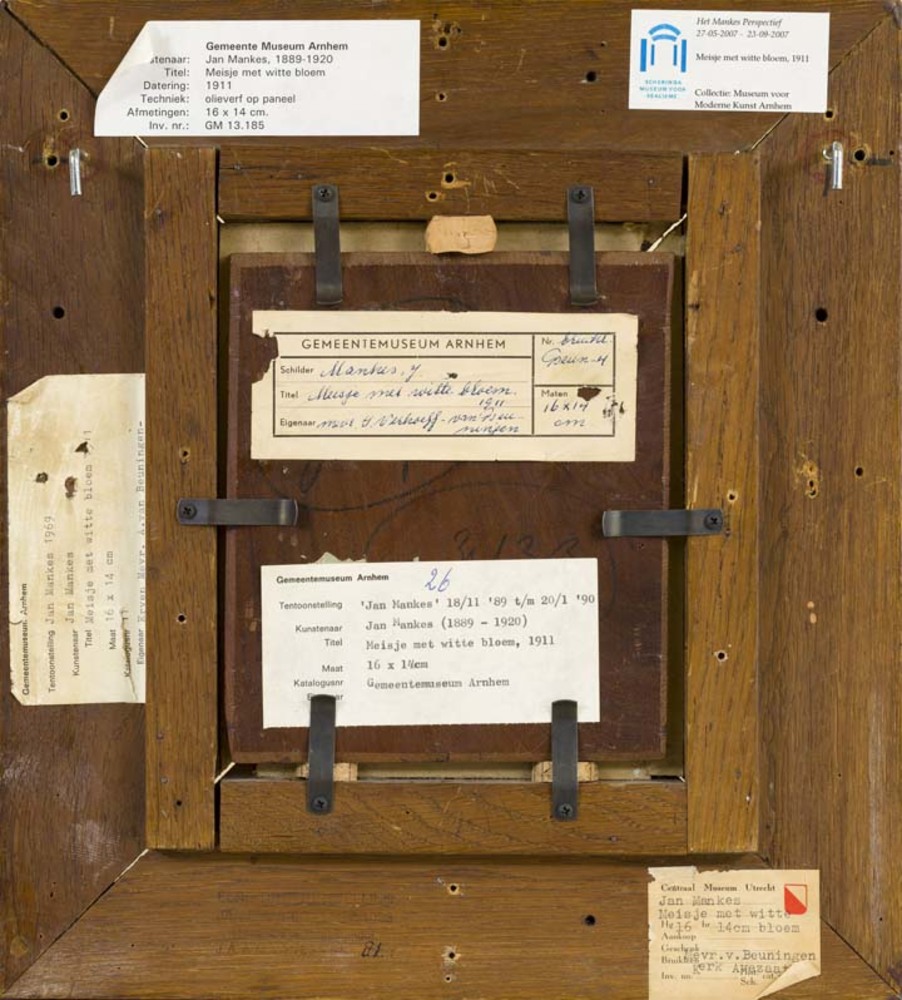 Gemeente Museum Arnhem
tenaar: Jan Mankes, 1889-1920
Titel: Meisje met witte bloem
Datering: 1911
Techniek: olieverf op paneel
Afmetingen: 16 x 14 cm.
Inv. nr.: GM 13.185
Het Mankes Perspectief
27-05-2007 - 23-09-2007
Meisje met witte bloem, 1911
SCHERINGA
MUSEUM VOOR
REALISME
Collectie: Museum voor
Moderne Kunst Arnhem
GEMEENTEMUSEUM ARNHEM
Nr. bruikl.
Schilder Mankes, J.
Titel Meisje met witte bloem.
1911
Maten
16 x 14
cm
Eigenaar mevr J Verhoeff-van Beu-
ningen
Gemeentemuseum Arnhem
Tentoonstelling Jan Mankes 1969
Kunstenaar Jan Mankes
Titel Meisje met witte bloem 1911
Maat 16 x 14 cm
Katalogusnr
Eigenaar Erven Mevr. A.van Beuningen-
Gemeentemuseum Arnhem
26
Tentoonstelling 'Jan Mankes' 18/11 '89 t/m 20/1 '90
Kunstenaar Jan Mankes (1889 - 1920)
Titel Meisje met witte bloem, 1911
Maat 16 x 14cm
Katalogusnr Gemeentemuseum Arnhem
ar
Centraal Museum Utrecht
Jan Mankes
Meisje met witte
Hg 16 br 14cm bloem
Aankoop
Geschenk
Bruikleen Mevr.v.Beuningen
Inv. no.
Sch.